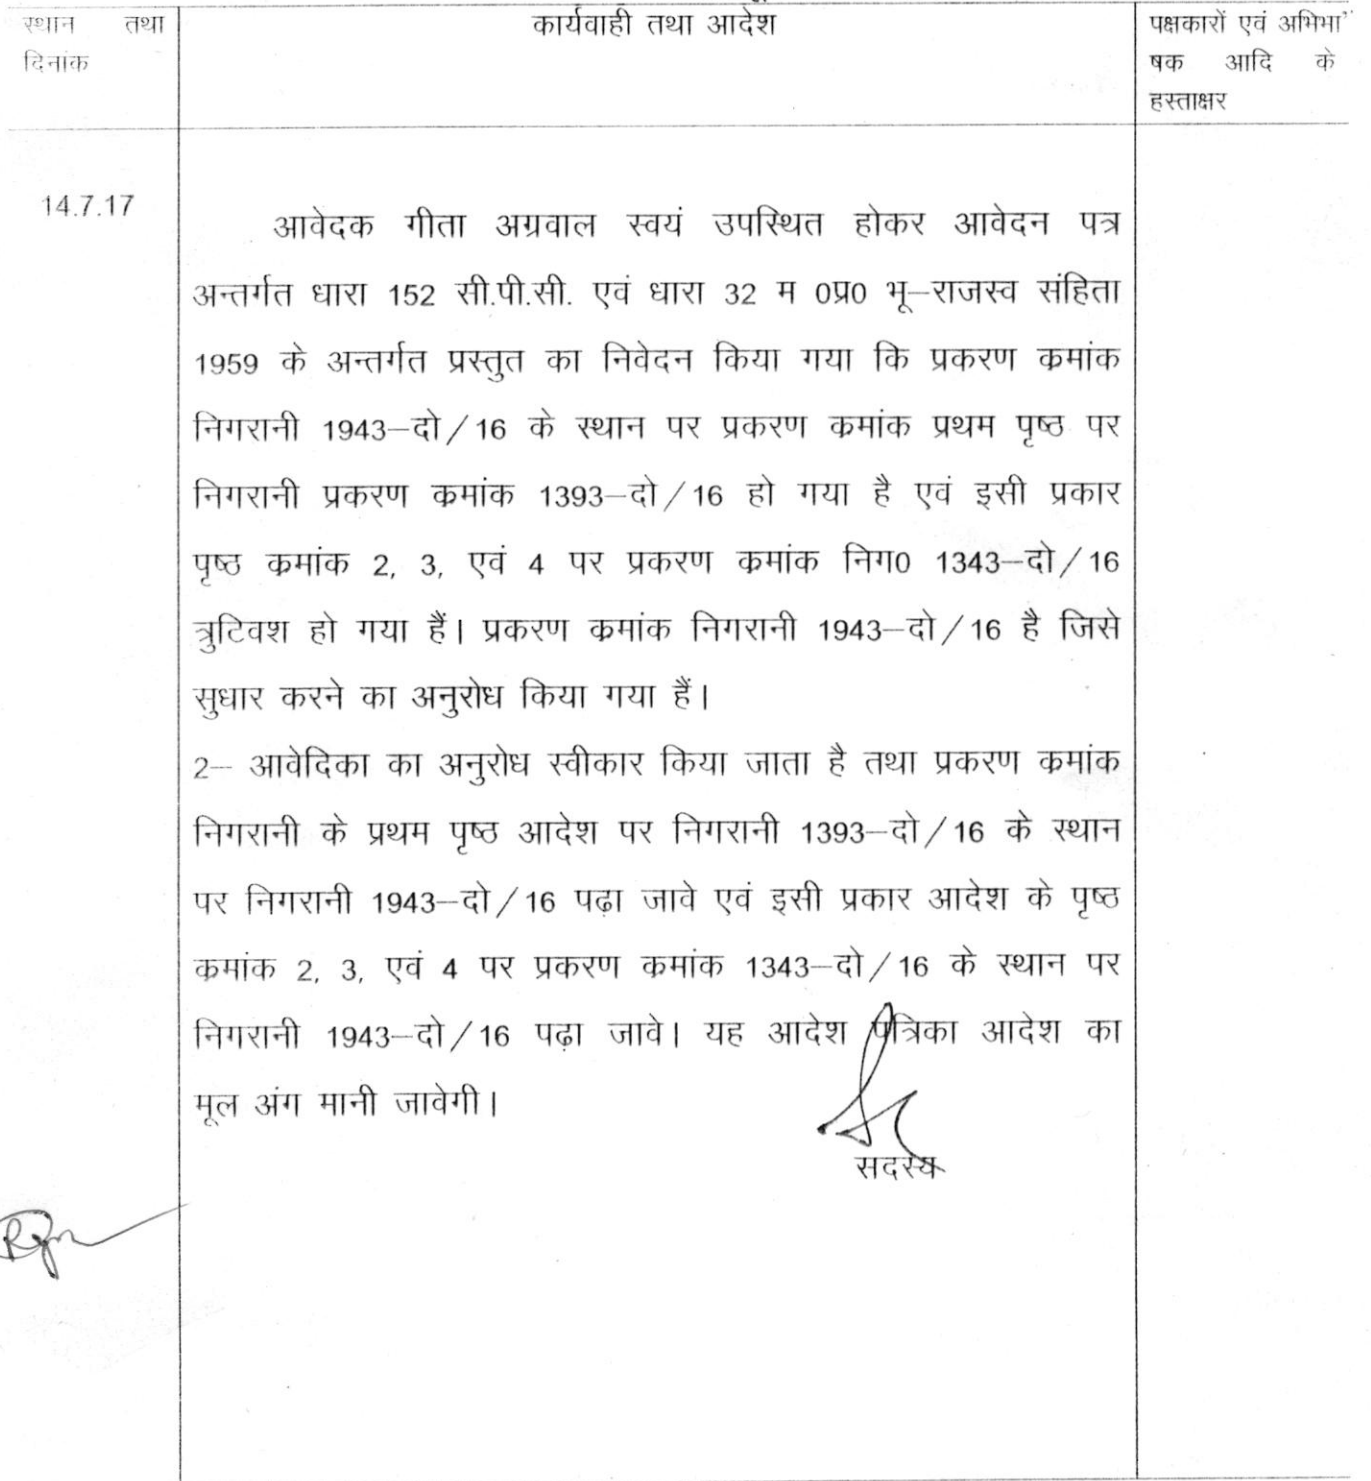 स्थान तथा
दिनांक
कार्यवाही तथा आदेश
पक्षकारों एवं अभिभा
षक आदि के
हस्ताक्षर
14.7.17
आवेदक गीता अग्रवाल स्वयं उपस्थित होकर आवेदन पत्र
अन्तर्गत धारा 152 सी.पी.सी. एवं धारा 32 म 0प्र0 भू–राजस्व संहिता
1959 के अन्तर्गत प्रस्तुत का निवेदन किया गया कि प्रकरण कमांक
निगरानी 1943–दो/16 के स्थान पर प्रकरण कमांक प्रथम पृष्ठ पर
निगरानी प्रकरण कमांक 1393–दो/16 हो गया है एवं इसी प्रकार
पृष्ठ कमांक 2, 3, एवं 4 पर प्रकरण कमांक निग0 1343–दो/16
त्रुटिवश हो गया हैं। प्रकरण कमांक निगरानी 1943–दो/16 है जिसे
सुधार करने का अनुरोध किया गया हैं।
2– आवेदिका का अनुरोध स्वीकार किया जाता है तथा प्रकरण कमांक
निगरानी के प्रथम पृष्ठ आदेश पर निगरानी 1393–दो/16 के स्थान
पर निगरानी 1943–दो/16 पढ़ा जावे एवं इसी प्रकार आदेश के पृष्ठ
कमांक 2, 3, एवं 4 पर प्रकरण कमांक 1343–दो/16 के स्थान पर
निगरानी 1943–दो/16 पढ़ा जावे। यह आदेश पत्रिका आदेश का
मूल अंग मानी जावेगी।
सदस्य